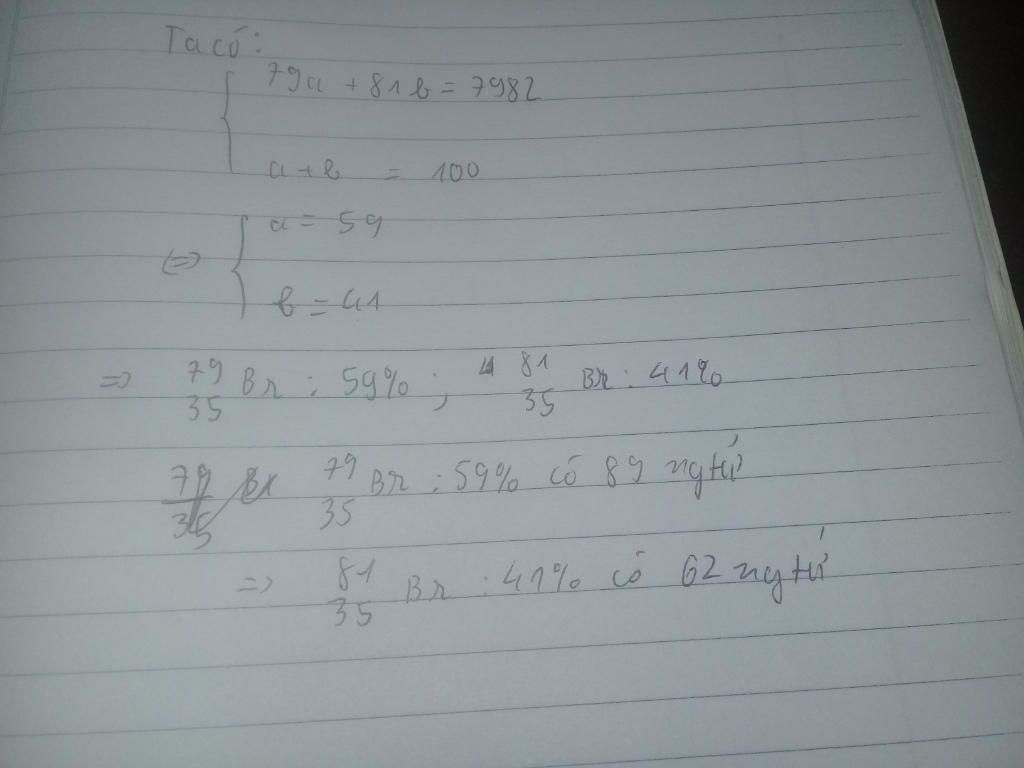 Ta có:
79a + 81b = 7982
a + b = 100
<=> a = 59
b = 41
=> 79 35 Br : 59% ; 81 35 Br : 41%
79 35 Br 79 35 Br : 59% có 89 ngtử
=> 81 35 Br : 41% có 62 ngtử